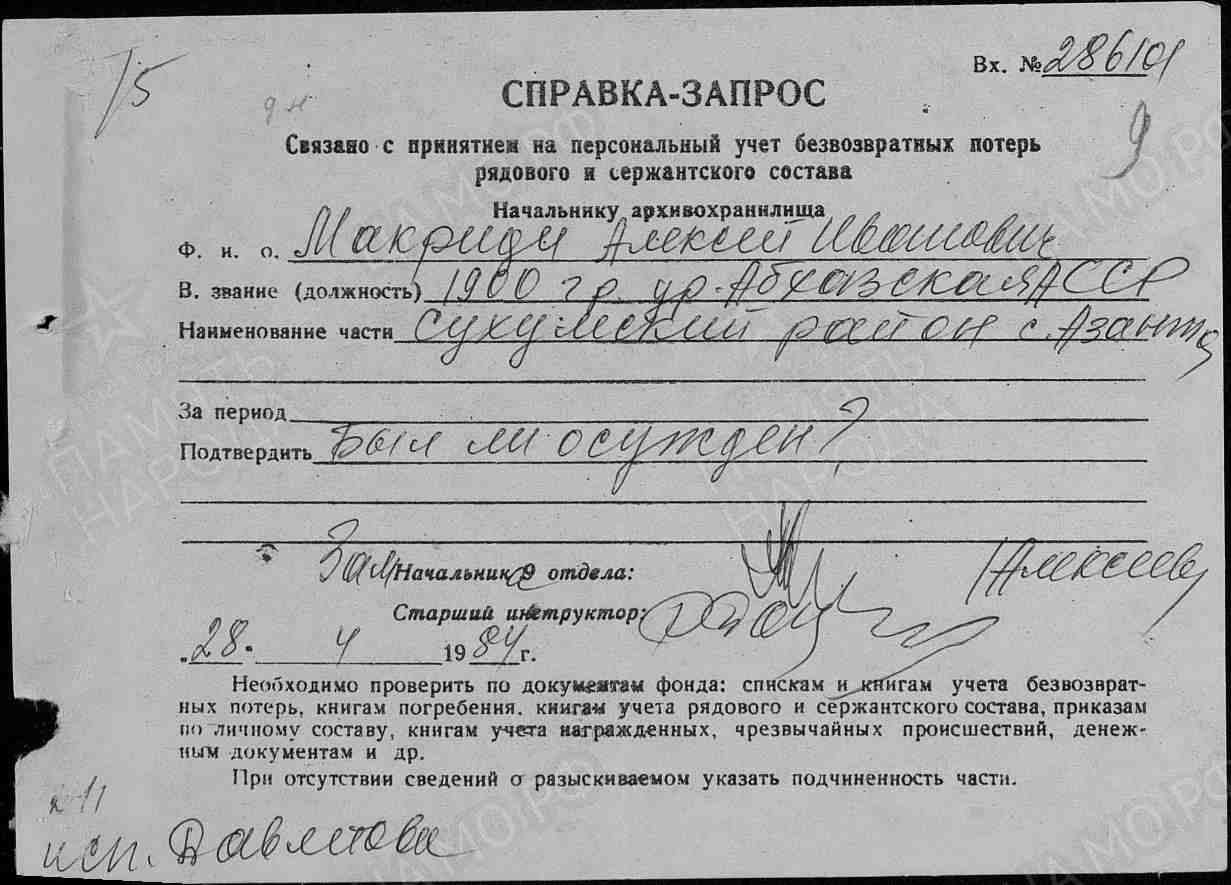 15
Вх. № 286101
СПРАВКА-ЗАПРОС
9
Связано с принятием на персональный учет безвозвратных потерь
рядового и сержантского состава
Начальнику архивохранилища
Ф. и. о. Макриди Алексей Иванович
В. звание (должность) 1900 г р. ур. Абхазская АССР
Наименование части Сухумский район с. Азанта
За период
Подтвердить Был ли осужден?
Зам Начальника 9 отдела: Алексеев
Старший инструктор:
„28" 4 1984 г.
Необходимо проверить по документам фонда: спискам и книгам учета безвозврат-
ных потерь, книгам погребения, книгам учета рядового и сержантского состава, приказам
по личному составу, книгам учета награжденных, чрезвычайных происшествий, денеж-
ным документам и др.
При отсутствии сведений о разыскиваемом указать подчиненность части.
к 11
исп. Давлетова
ПАМЯТЬ
НАРОДА
ПАМЯТЬ
НАРОДА
ЦА МО РФ